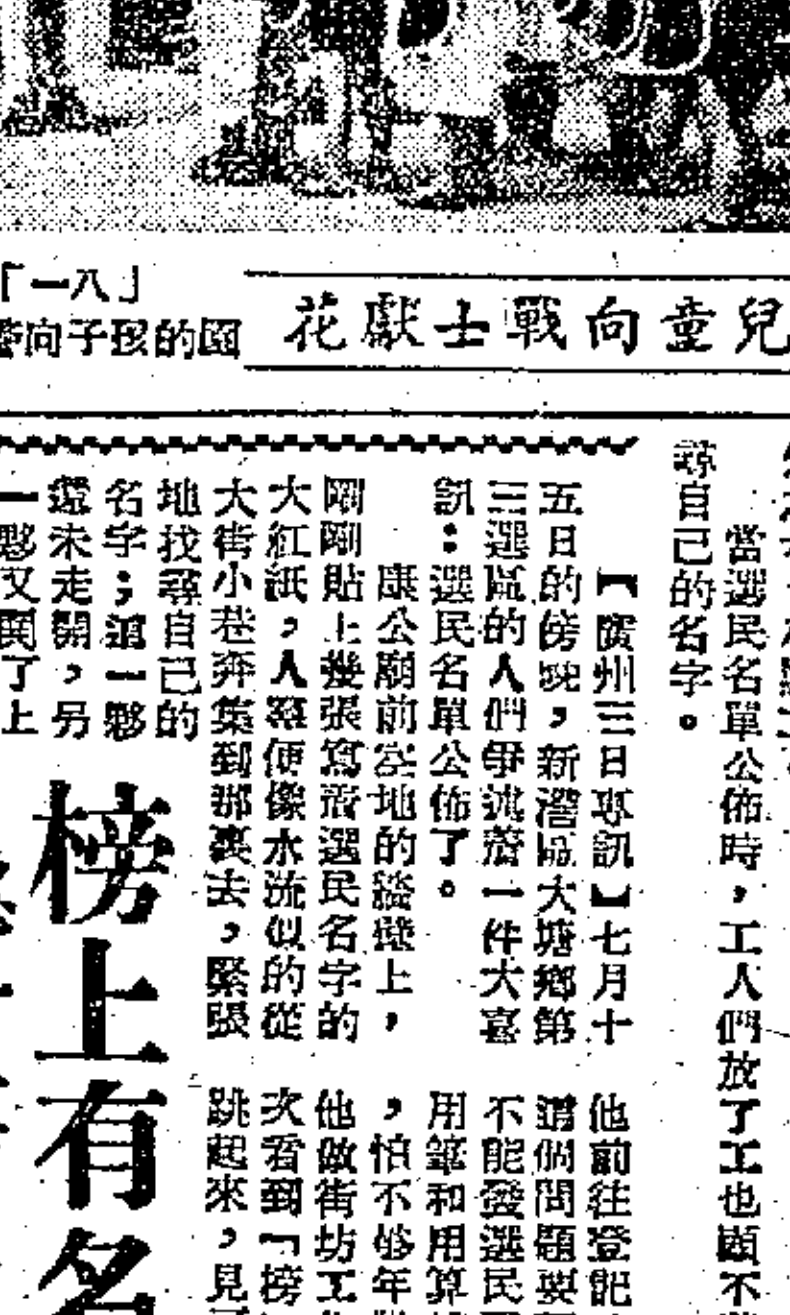 兒童向戰士獻花
「一八」
向子孩的園
尋自己的名字。
當選民名單公佈時，工人們放了工也顧不
【廣州三日專訊】七月十
五日的傍晚，新滘區大塘鄉第
三選區的人們爭述着一件大喜
訊：選民名單公佈了。
康公廟前空地的牆壁上，
剛剛貼上幾張寫着選民名字的
大紅紙，人羣便像水流似的從
大街小巷奔集到那裏去，緊張
地找尋自己的
名字；這一夥
還未走開，另
一夥又圍了上
榜上有名
他前往登記
這個問題要
不能發選民
用筆和用算
，怕不够年
他做街坊工
次看到「榜
跳起來，見